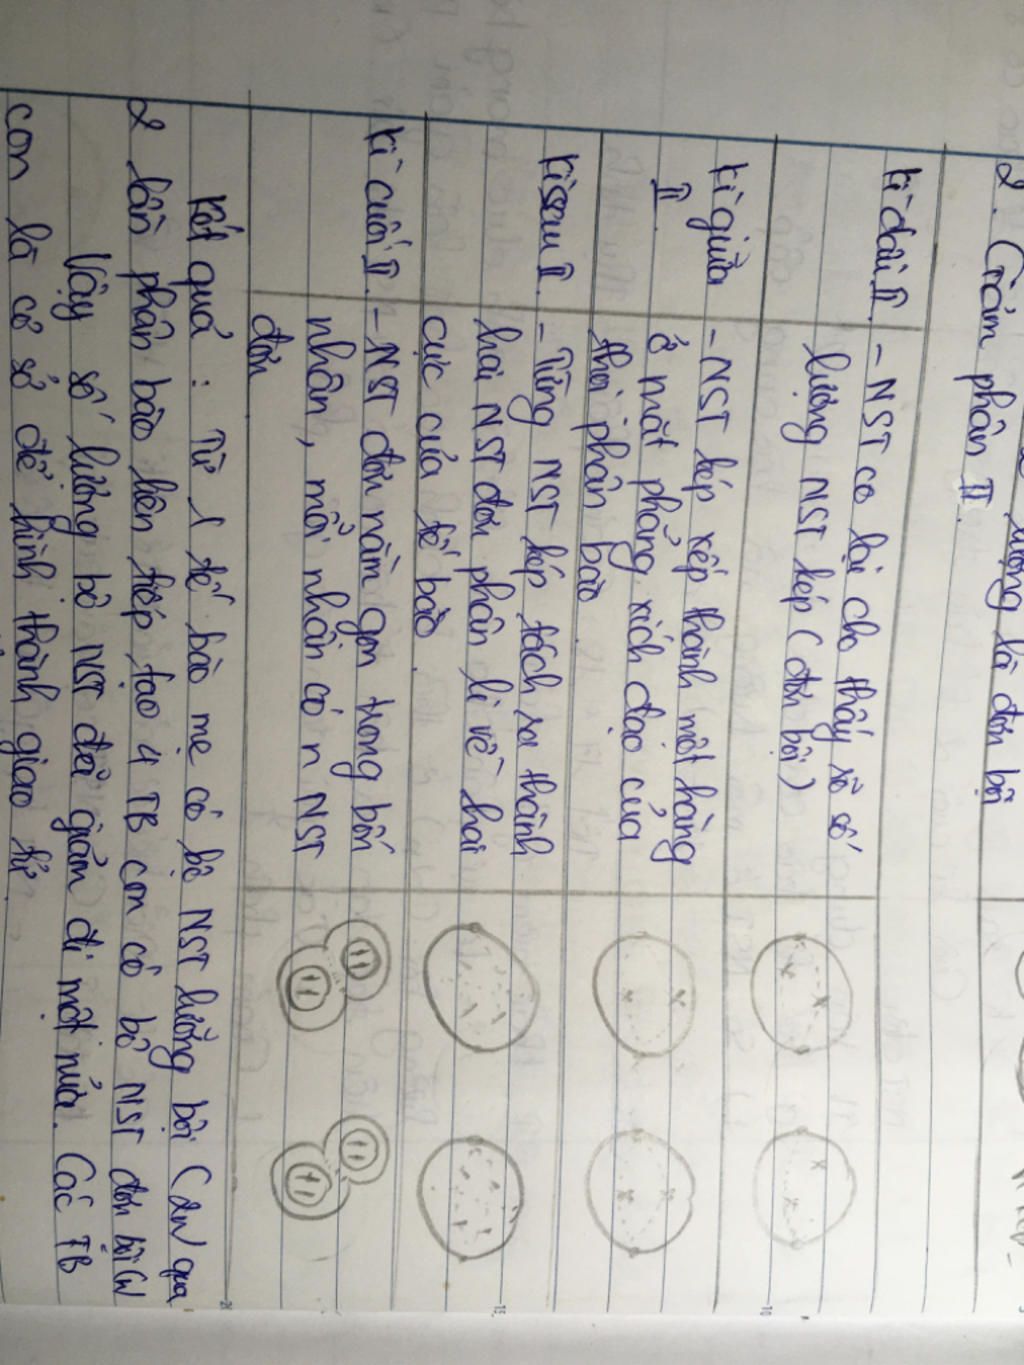 lượng là đơn bội
2. Giảm phân II.
Kì đầu II. - NST co lại cho thấy rõ số
lượng NST kép (đơn bội)
Kì giữa - NST kép xếp thành một hàng
II. ở mặt phẳng xích đạo của
thoi phân bào.
Kì sau II. - Từng NST kép tách ra thành
hai NST đơn phân li về hai
cực của tế bào.
Kì cuối II. - NST đơn nằm gọn trong bốn
nhân, mỗi nhân có n NST
đơn
Kết quả : Từ 1 tế bào mẹ có bộ NST lưỡng bội (2n qua
2 lần phân bào liên tiếp tạo 4 TB con có bộ NST đơn bội (n
Vậy số lượng bộ NST đã giảm đi một nửa. Các TB
con là cơ sở để hình thành giao tử.
10
15
20